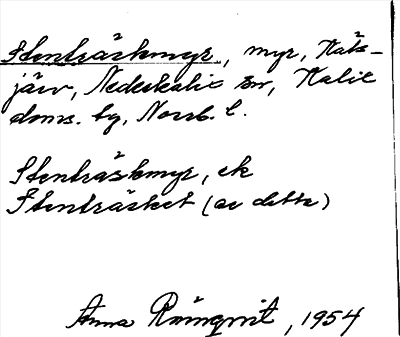 Stenträskmyr, myr, Kats-
järv, Nederkalix sn, Kalix
doms. tg, Norrb. l.
Stenträskmyr, ek
Stenträsket (av detta)
Anna Rönnqvist, 1954